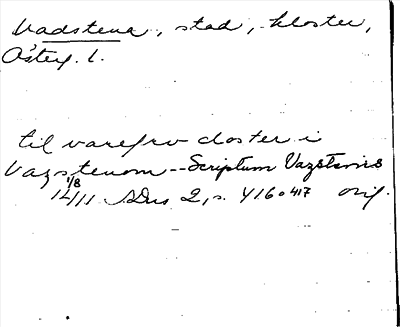 Vadstena, stad, kloster,
Östg. l.
til varefrv closter i
Vazstenom -- Scriptum Vazstenis
1/8
1411 SDns 2, s. 416 o 417 orig.